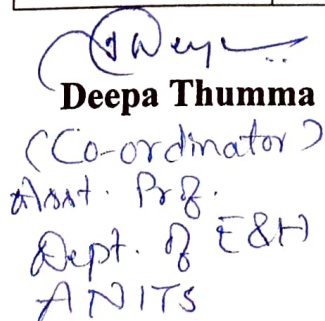 Deepa Thumma
(Co-ordinator)
Asst. Prof.
Dept. of E&H
ANITS